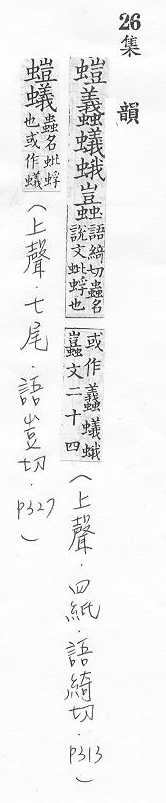 26
集韻
螘蟻蛾䘆語綺切蟲名說文蚍蜉也
或作蟻蛾文二十四
(上聲·四紙·語綺切·P313)
螘蟻蟲名蚍蜉也或作蟻
(上聲·七尾·語豈切·P327)